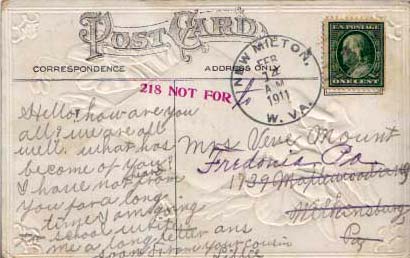 POST CARD
CORRESPONDENCE
ADDRESS ONLY
218 NOT FOR
NEW MILTON,
FEB
14
AM
1911
W. VA.
U.S. POSTAGE
ONE CENT
Hello! how are you
all? we are all
well. what has
become of you?
I have not
heard
from
you for a long
time. I am going
to school write
me a long letter ans
soon from your cousin
Mrs Vene Mount
Fredonia, Pa.
1739 Maplewood
Wilkinsburg
Pa